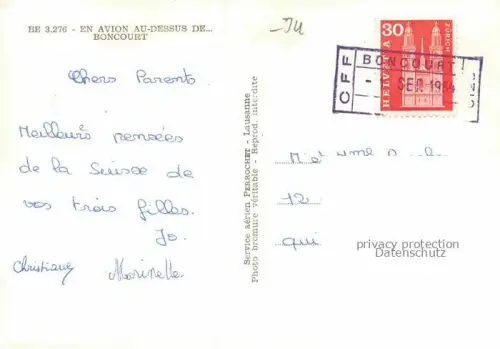 BE 3.276 - EN AVION AU-DESSUS DE...
BONCOURT
Chers Parents
Meilleurs pensées
de la Suisse de
vos trois filles.
Jo.
Christiane Marinette
Service aérien PERROCHET - Lausanne
Photo bromure véritable - Reprod. interdite
Ju
30
ZÜRICH
HELVETIA
CFF
BONCOURT
SEP. 1964
M et Mme
12
qui
privacy protection
Datenschutz